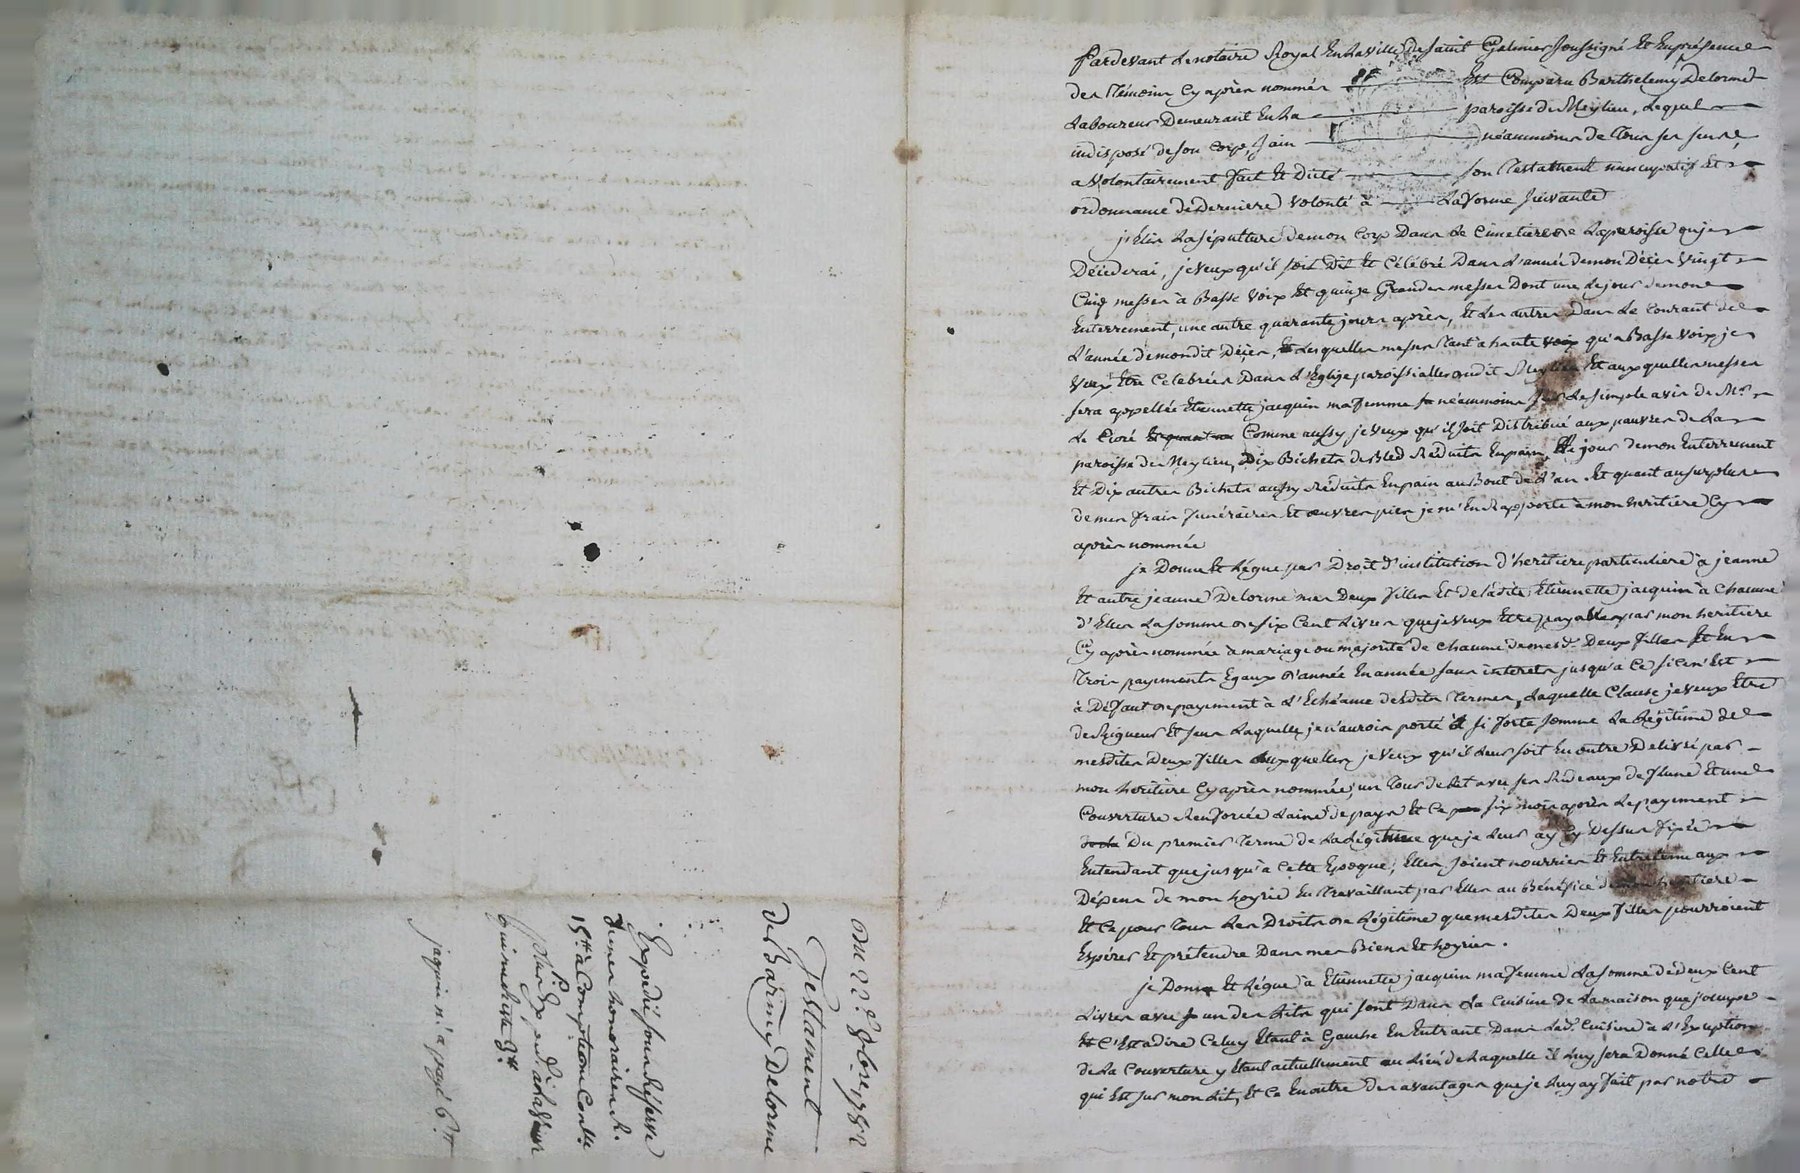 Pardevant Le notaire Royal En La ville De Saint Galmier soussigné Et En présence
des témoins Cy après nommés Est Comparu Barthelemy Delorme
Laboureur Demeurant En La paroisse de Meylieu, Lequel
indisposé de son Corp, Sain néanmoins de Tous ses sens,
a volontairement fait Et Dicté son Testament nuncupatif Et
ordonnance de Derniere volonté à La forme suivante
j'Elis La sépulture de mon Corp Dans Le Cimetiere de La paroisse ou je
Déciderai, je veux qu'il soit Dit Et Célébré Dans L'année de mon Décès vingt
Cinq messes à Basse voix Et quinze Grandes messes Dont une Le jour de mon
Enterrement, une autre quarante jours après, Et Les autres Dans Le Courant de
L'année de mondit Décès, Lesquelles messes Tant a haute voix qu'a Basse voix je
veux Etre Celebrées Dans L'Eglize paroissialle dudit Meylieu Et aux quelles messes
sera appellée Etiennette jacquin ma femme néanmoins sur Le simple avis de Mr.
Le Curé Comme aussy je veux qu'il soit Distribué aux pauvres de La
paroisse de Meylieu, Dix Bichets de Bled Réduits En pain, Le jour de mon Enterrement
Et Dix autres Bichets aussy Réduits En pain au Bout de L'an. Et quant au surplus
de mes frais funéraires Et œuvres pies je m'En Rapporte à mon heritiere Cy
après nommée
je Donne Et Légue par Droit d'institution d'heritiere particuliere à jeanne
Et autre jeanne Delorme mes Deux filles Et de Ladite Etiennette jacquin à Chacune
d'Elles La somme de six Cent Livres que je veux Etre payables par mon heritiere
Cy après nommée à mariage ou majorité de Chacune de mesd. Deux filles Et En
Trois payements Egaux d'année En année sans interets jusqu'à Ce si Ce n'Est
à Défaut de payement à L'Echéance desdits Termes, Laquelle Clause je veux Etre
de Rigueur Et sans Laquelle je n'aurois porté à si forte somme La Légitime de
mesdites Deux filles auxquelles je veux qu'il Leur soit En outre Délivré par
mon héritière Cy après nommée, un Tour de Lit avec ses Rideaux de filine Et une
Couverture Renforcée Laine de pays Et Ce six mois après Le payement
Du premier Terme de La Légitime que je Leur ay Cy Dessus fixée
Entendant que jusqu'à Cette Epoque, Elles soient nourries Et Entretenu aux
Dépens de mon hoyrie En Travaillant par Elles au Bénéfice de mon heritiere
Et Ce pour Tous Les Droits de Légitime que mesdites Deux filles pourroient
Espérer Et prétendre Dans mes Biens Et hoyries.
je Donne Et Légue à Etiennette jacquin ma femme La somme de deux Cent
Livres avec un des Lits qui sont Dans La Cuisine de La maison que j'occupe
Et C'Est adire Celuy Etant à Gauche En Entrant Dans Lad. Cuisine à L'Exception
de La Couverture y Etant actuellement au Lieu de Laquelle il Luy sera Donné Celle
qui Est sur mon Lit, Et Ce En outre des avantages que je Luy ay fait par notre
Du 22e. 8bre. 1782
Testament
De Barmy Delorme
Expedié sous Réserve
de mes honoraires R.
15tt à Comption Conlle
jaquin n'a payé 6tt